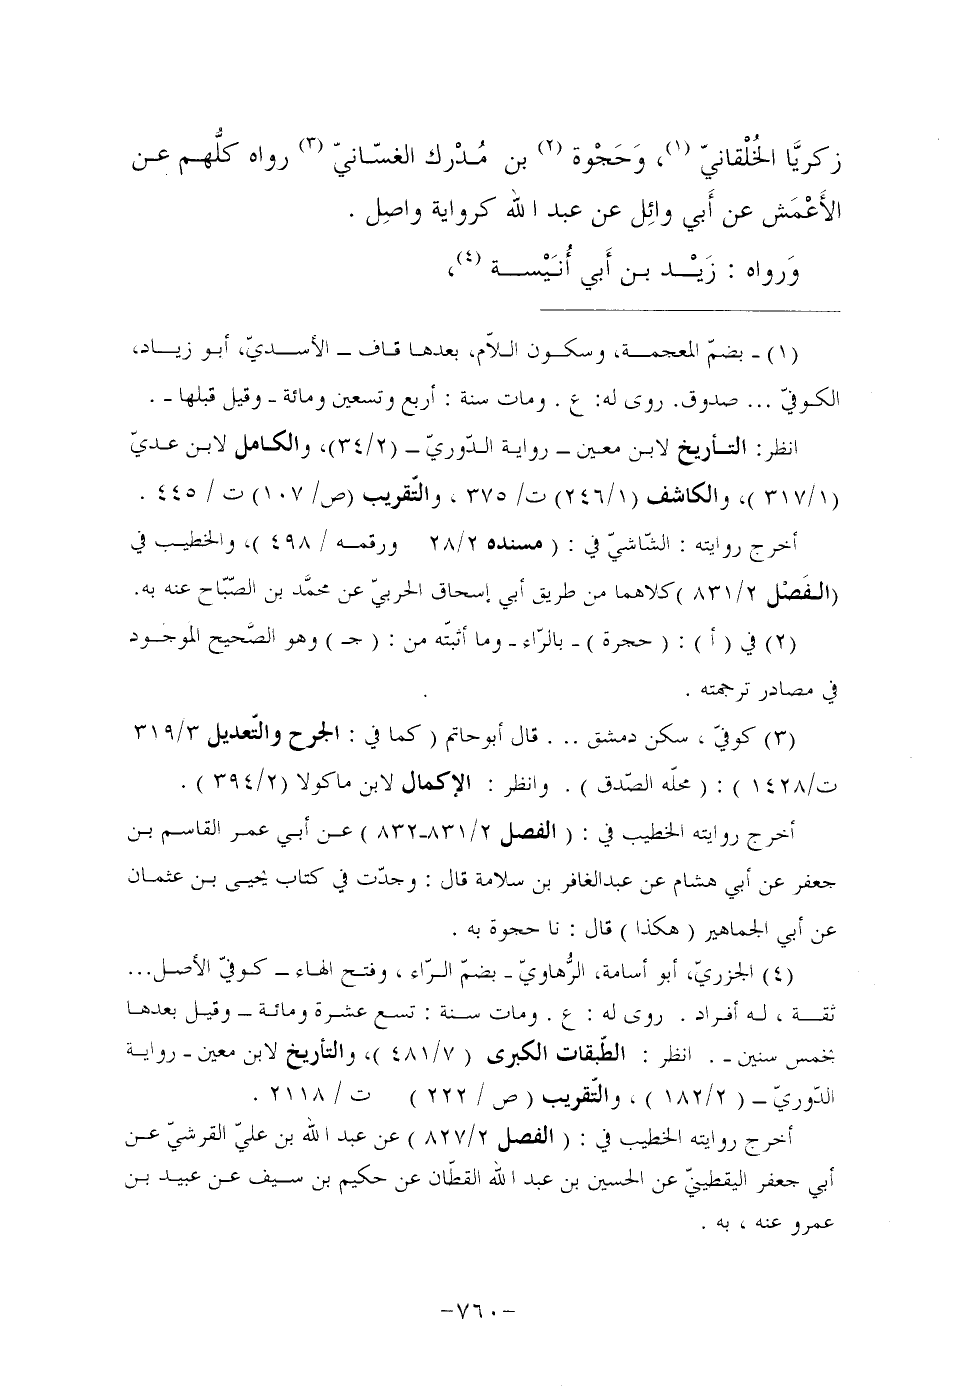 زكريَّا الخُلْقانيّ (١)، وَحَجْوة (٢) بن مُدْرك الغسّانيّ (٣) رواه كلُّهم عن
الأَعْمَش عن أَبي وائِل عن عبد الله كرواية واصِل .
وَرواه : زَيْد بن أَبي أُنَيْسة (٤)،
(١) - بضمّ المعجمة، وسكون اللاّم، بعدها قاف - الأسديّ، أبو زياد،
الكوفيّ ... صدوق. روى له: ع . ومات سنة : أربع وتسعين ومائة - وقيل قبلها - .
انظر: التأريخ لابن معين - رواية الدّوريّ - (٣٤/٢)، والكامل لابن عديّ
(٣١٧/١ )، والكاشف (٢٤٦/١) ت/ ٣٧٥ ، والتّقريب (ص/ ١٠٧) ت / ٤٤٥ .
أخرج روايته : الشّاشيّ في : ( مسنده ٢٨/٢ ورقمه / ٤٩٨ )، والخطيب في
(الفَصْل ٨٣١/٢ )كلاهما من طريق أبي إسحاق الحربيّ عن محمَّد بن الصّبّاح عنه به.
(٢) في ( أ ) : ( حجرة ) - بالرّاء - وما أثبتّه من : ( جـ ) وهو الصَّحيح الموجود
في مصادر ترجمته .
(٣) كوفيّ ، سكن دمشق ... قال أبوحاتم ( كما في : الجرح والتّعديل ٣١٩/٣
ت/١٤٢٨ ) : ( محلّه الصّدق ) . وانظر : الإكمال لابن ماكولا (٣٩٤/٢ ) .
أخرج روايته الخطيب في : ( الفصل ٨٣١/٢-٨٣٢ ) عن أبي عمر القاسم بن
جعفر عن أبي هشام عن عبدالغافر بن سلامة قال : وجدّت في كتاب يحيى بن عثمان
عن أبي الجماهير ( هكذا ) قال : نا حجوة به .
(٤) الجزريّ، أبو أسامة، الرُّهاويّ - بضمّ الرّاء ، وفتح الهاء - كوفيّ الأصل...
ثقة ، له أفراد . روى له : ع . ومات سنة : تسع عشرة ومائة - وقيل بعدها
بخمس سنين - . انظر : الطّبقات الكبرى ( ٤٨١/٧ )، والتأريخ لابن معين - رواية
الدّوريّ - ( ١٨٢/٢ ) ، والتّقريب ( ص / ٢٢٢ ) ت / ٢١١٨ .
أخرج روايته الخطيب في : ( الفصل ٨٢٧/٢ ) عن عبد الله بن عليّ القرشيّ عن
أبي جعفر اليقطينيّ عن الحسين بن عبد الله القطّان عن حكيم بن سيف عن عبيد بن
عمرو عنه ، به .
-٧٦٠-